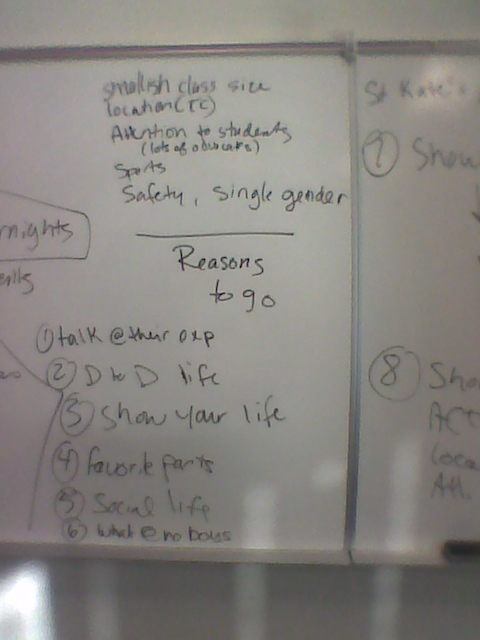 smallish class size
location (TC)
Attention to students
(lots of advocate)
Sports
Safety, single gender
Reasons
to go
rnights
① talk @ their exp
② D to D life
③ Show your life
④ favorite parts
⑤ Social life
⑥ what @ no boys
St Kate's
⑦ Show
⑧ Sho
ACT
loca
Att.